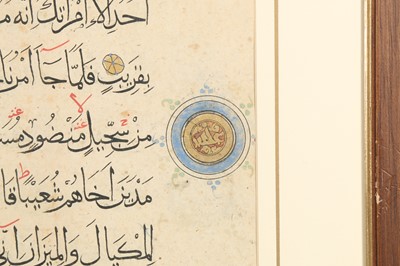 احد الا امراتك انه م
بقريب فلما جا امرنا
من سجيل منضود مسو
مدين اخاهم شعيبا قا
المكيال والميزان اني